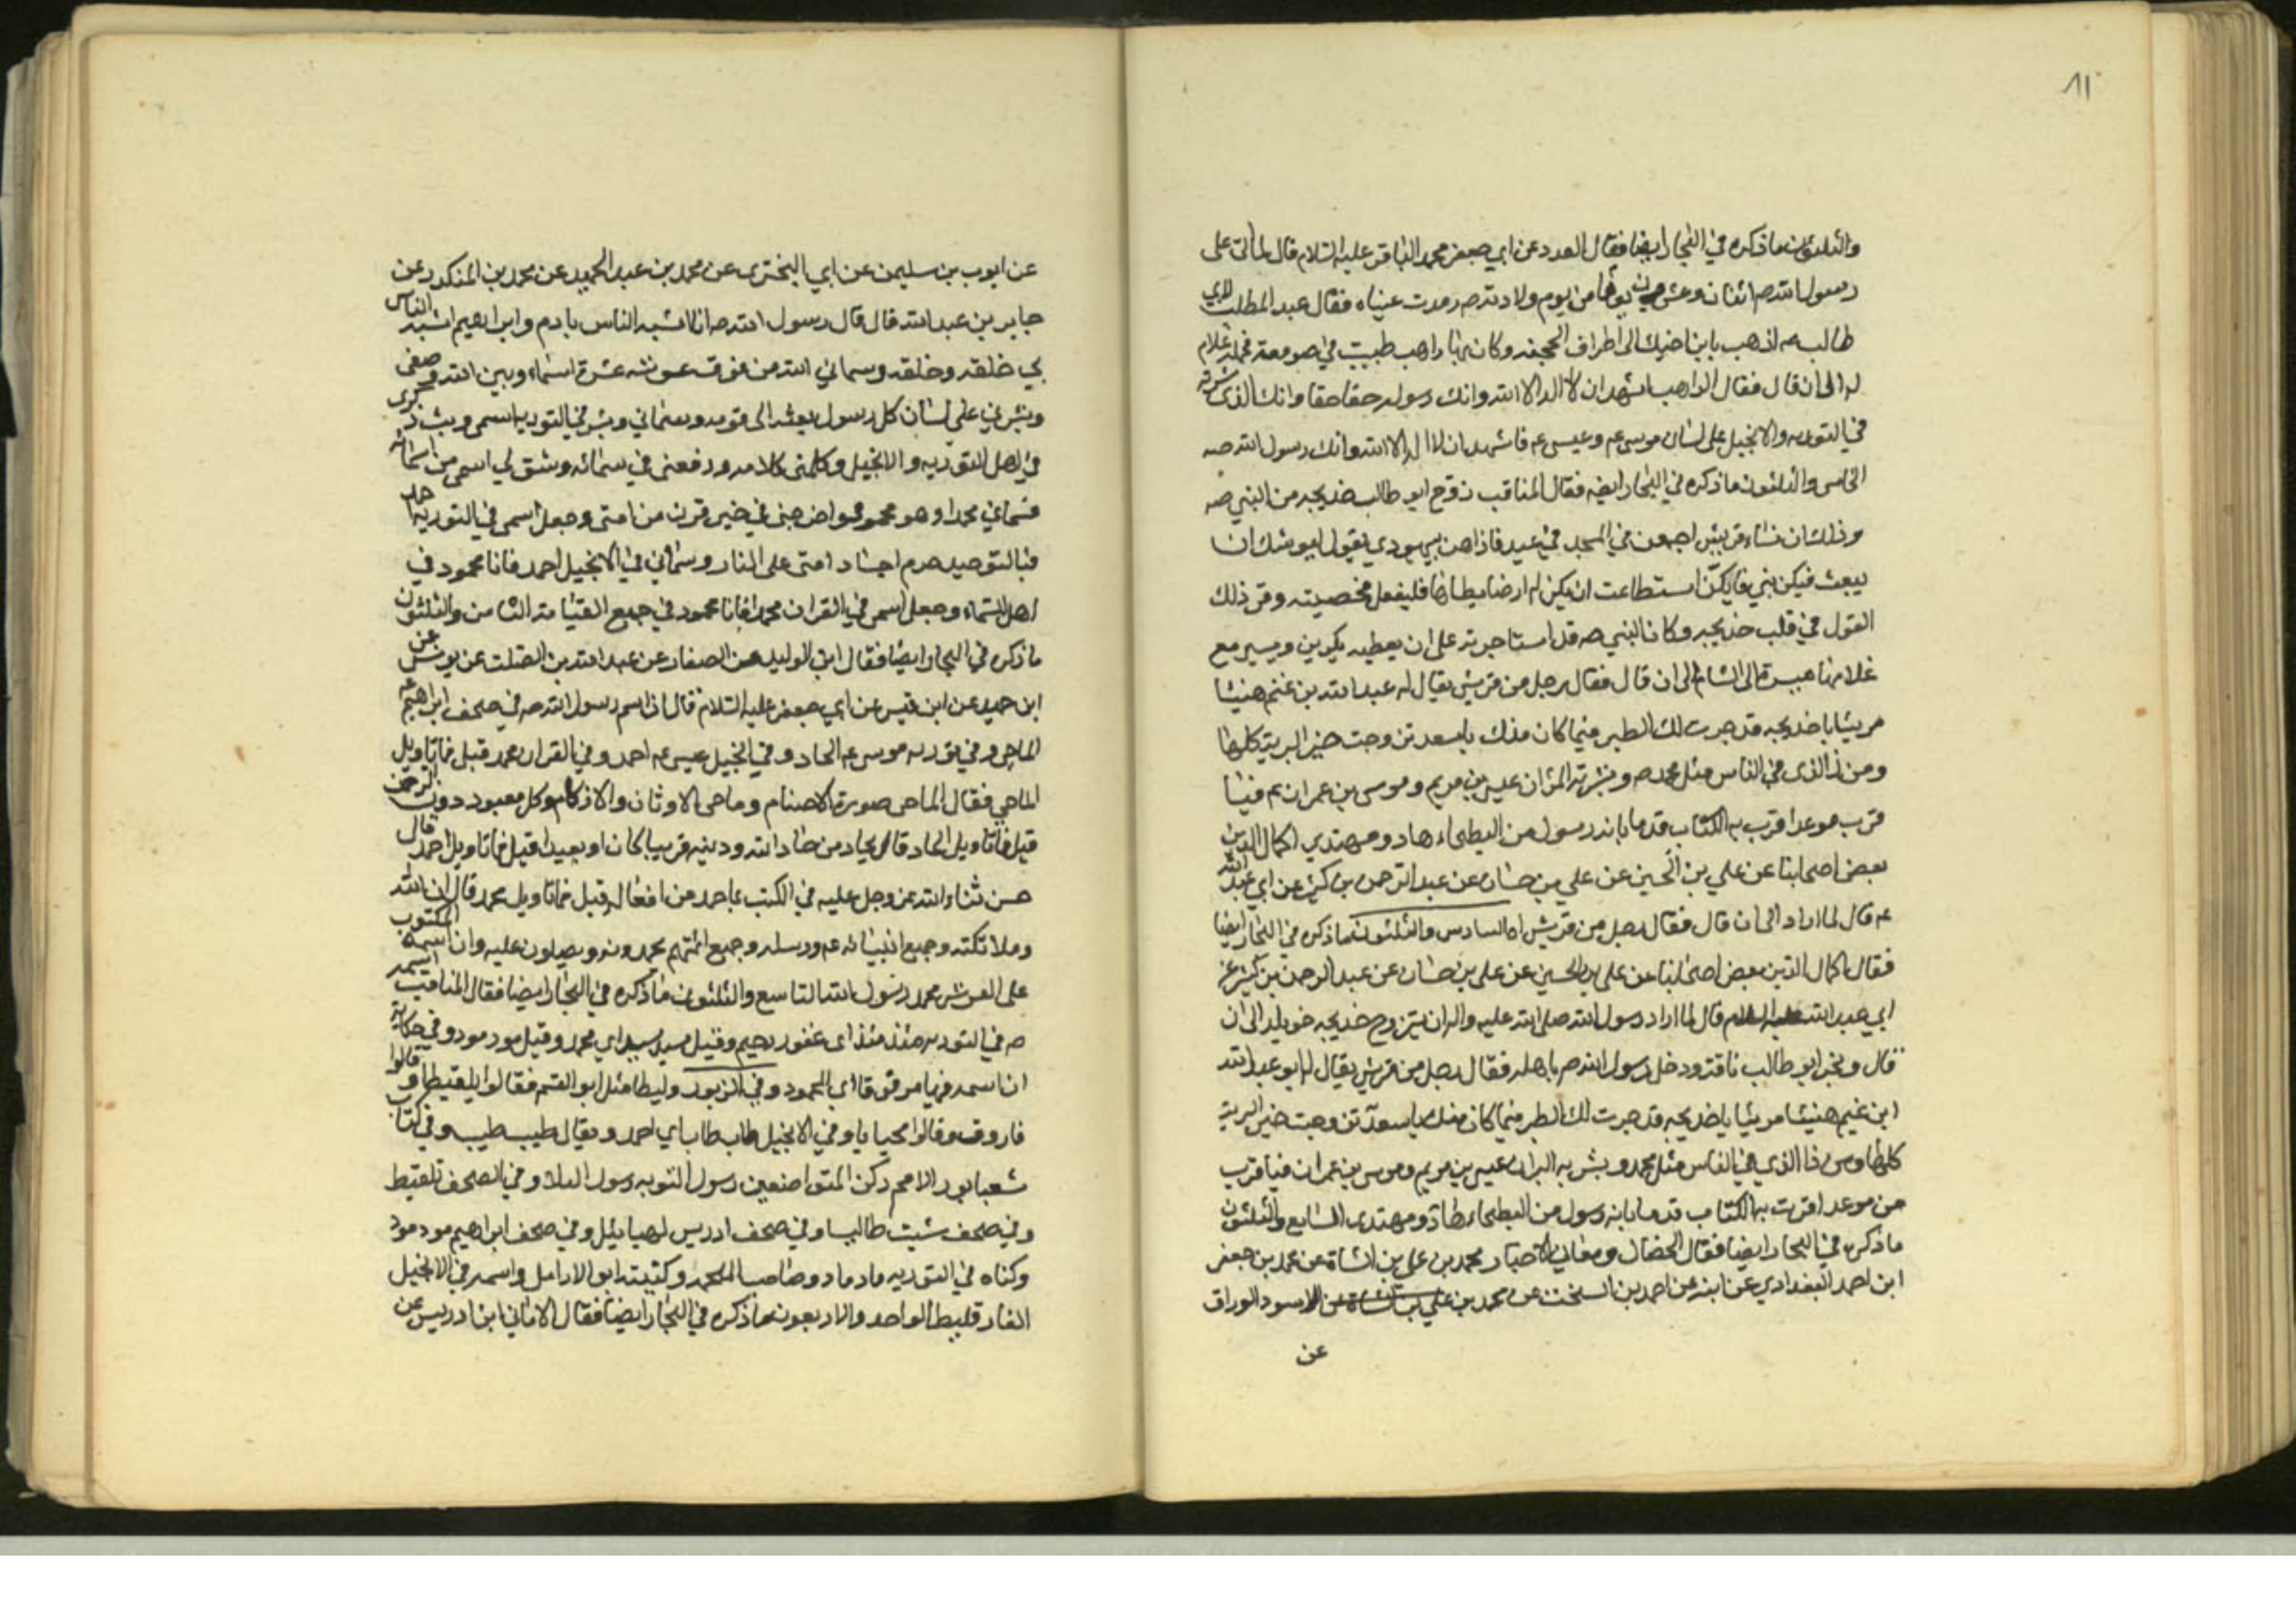 ١١
والثلثون ما ذكره في البحار ايضا فقال العدد عن ابي جعفر محمد الباقر عليه السلام قال لما اتى على
رسول الله صم اثنان وعشرون يوما من يوم ولادته صم رمدت عيناه فقال عبد المطلب لابي
طالب عم اذهب بابن اخيك الى اطراف الجحفه وكان بها راهب طبيب في صومعته فحمله غلام
له الى ان قال فقال الراهب اشهد ان لا اله الا الله وانك رسوله حقا حقا وانك الذي بشر به
في التوريه والانجيل على لسان موسى عم وعيسى عم فاشهد ان لا اله الا الله وانك رسول الله صه
الخامس والثلثون ما ذكره في البحار ايضه فقال المناقب زوج ابو طالب خديجه من النبي صه
وذلك ان نساء قريش اجتمعن في المسجد في عيد فاذا هن بيهودي يقول ليوشك ان
يبعث فيكن نبي فايكن استطاعت ان يكون لها ارضا يطاها فليفعل فحصبنه وقر ذلك
القول في قلب خديجه وكان النبي صه قد استاجرته على ان يعطيه بكرين ويسير مع
غلامها ميسرة الى الشام الى ان قال فقال رجل من قريش يقال له عبد الله بن غنم هنيئا
مريئا يا خديجه قد جرت لك الطير فيما كان منك باسعد تزوجت خير البرية كلها
ومن ذا الذي في الناس مثل محمد صه وبشر به المرآن عيسى بن مريم وموسى بن عمران عم فيا
قرب موعد اقرت به الكتاب قدما بانه رسول من البطحاء هاد ومهتدي اكمال الدين
بعض اصحابنا عن علي بن الحسين عن علي بن حسان عن عبد الرحمن بن كثير عن ابي عبد الله
عم قال لما اراد الى ان قال فقال رجل من قريش اه السادس والثلثون ما ذكره في البحار ايضا
فقال اكمال الدين بعض اصحابنا عن علي بن الحسين عن علي بن حسان عن عبد الرحمن بن كثير عن
ابي عبد الله عليه السلام قال لما اراد رسول الله صلى الله عليه واله ان يتزوج خديجه خويلد الى ان
قال ونحر ابو طالب ناقة ودخل رسول الله صم باهله فقال رجل من قريش يقال له ابو عبد الله
ابن غنيم هنيئا مريئا يا خديجه قد جرت لك الطير فيما كان منك باسعد تزوجت خير البرية
كلها ومن ذا الذي في الناس مثل محمد وبشر به البران عيسى بن مريم وموسى بن عمران فيا قرب
من موعد اقرت به الكتاب قدما بانه رسول من البطحاء هاد ومهتدي السابع والثلثون
ما ذكره في البحار ايضا فقال الخصال ومعاني الاخبار محمد بن علي بن الشاة عن محمد بن جعفر
ابن احمد البغدادي عن ابيه عن احمد بن السخت عن محمد بن الاسود الوراق
عن
عن ايوب بن سليمن عن ابي البختري عن محمد بن عبد الحميد عن محمد بن المنكدر عن
جابر بن عبد الله قال قال رسول الله صه انا اشبه الناس بادم وابراهيم اشبه الناس
بي خلقه وخلقه وسماني الله من فوق عرشه عشرة اسماء وبين الله وصفي
وبشرني على لسان كل رسول بعثه الى قومه وسماني وبشر في التوريه اسمى وبث ذكرى
في اهل التوريه والانجيل وكلمنى كلامه ورفعنى في سمائه وشق لي اسمى من اسمائه
فسماني محمدا وهو محمود واخرجنى في خير قرن من امتى وجعل اسمى في التوريه احيد
فبالتوحيد حرم اجساد امتى على النار وسماني في الانجيل احمد فانا محمود في
اهل السماء وجعل اسمى في القران محمدا فانا محمود في جميع القيامة الثامن والثلثون
ما ذكره في البحار ايضا فقال ابن الوليد عن الصفار عن عبد الله بن الصلت عن يونس عن
ابن حميد عن ابن قيس عن ابي جعفر عليه السلام قال ان اسم رسول الله صه في صحف ابراهيم عم
الماحي وفي توريه موسى عم الحاد وفي انجيل عيسى عم احمد وفي القران محمد قيل فما تاويل
الماحي فقال الماحي صورة الاصنام وماحي الاوثان والازلام وكل معبود دون الرحمن
قيل فما تاويل الحاد قال يحاد من حاد الله ودينه قريبا كان او بعيدا قيل فما تاويل احمد قال
حسن ثناء الله عز وجل عليه في الكتب بما حمد من افعاله قيل فما تاويل محمد قال ان الله
وملائكته وجميع انبيائه عم ورسله وجميع اممهم يحمدونه ويصلون عليه وان اسمه المكتوب
على العرش محمد رسول الله التاسع والثلثون ما ذكره في البحار ايضا فقال المناقب اسمه
صه في التوريه مئذ مئذ اى غفور رحيم وقيل ميد ميد اي محمد وقيل مود مود وفي حكاية
ان اسمه فيها مرقوقا اي المحمود وفي الزبور وليطا مثل ابو القسم فقالوا بلقيطا وقالوا
فاروق وقالوا محياثا وفي الانجيل طاب طاب اي احمد ويقال طيب طيب وفي كتاب
شعيا نور الامم ركن المتواضعين رسول التوبه رسول البلاء وفي الصحف بلقيط
وفي صحف شيث طاليسا وفي صحف ادريس لهيائيل وفي صحف ابراهيم مود مود
وكناه في التوريه ماد ماد وصاحب الملحمه وكنيته ابو الارامل واسمه في الانجيل
الفارقليط الواحد والاربعون ما ذكره في البحار ايضا فقال الاماني ابن ادريس عن